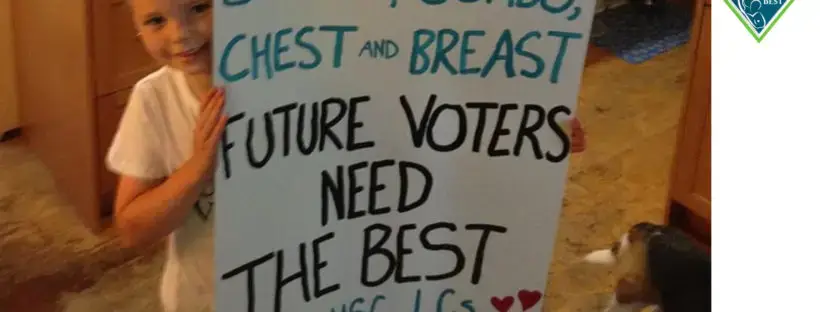 CHEST AND BREAST
FUTURE VOTERS
NEED
THE BEST
BEST